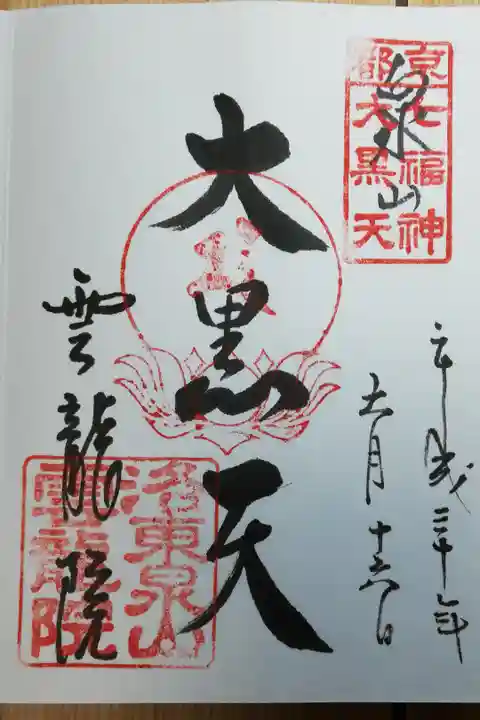 京都
七福神
大黒天
泉山
平成三十年
十一月十六日
大黒天
雲龍院
洛東泉山
雲龍院